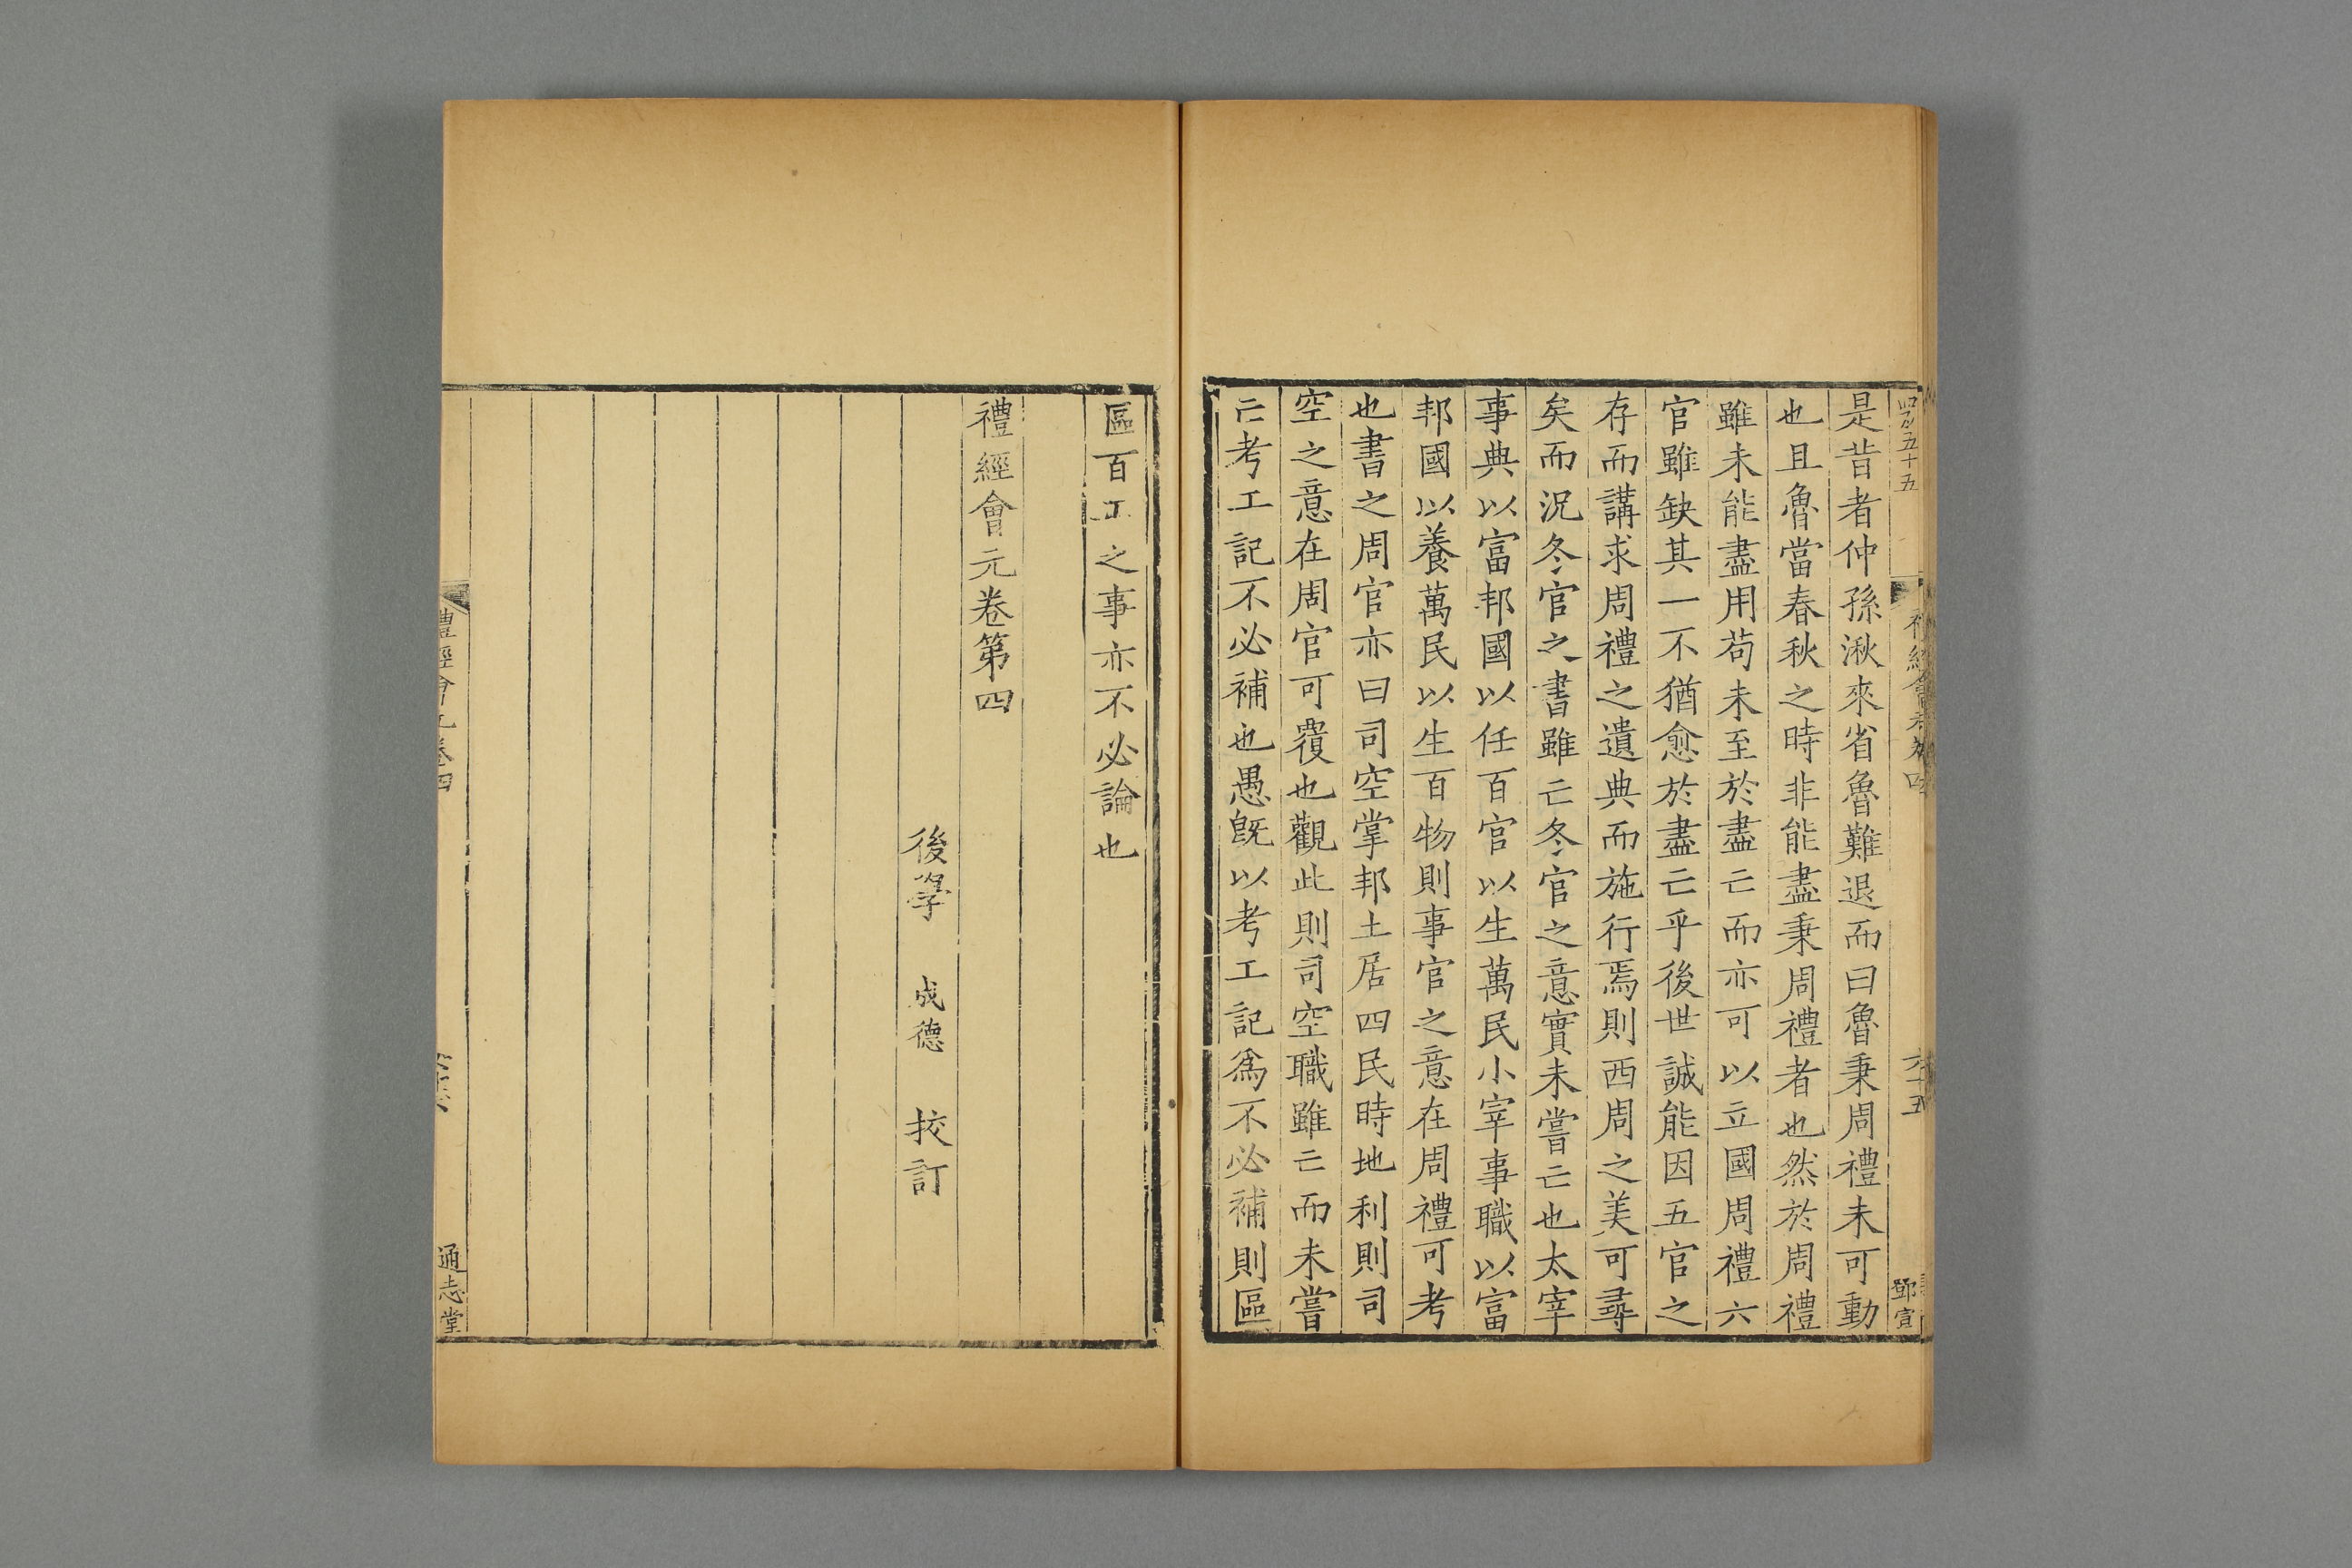 五十五
禮經會元卷四
六十五
鄧宣
是昔者仲孫湫來省魯難退而曰魯秉周禮未可動
也且魯當春秋之時非能盡秉周禮者也然於周禮
雖未能盡用苟未至於盡亡而亦可以立國周禮六
官雖缺其一不猶愈於盡亡乎後世誠能因五官之
存而講求周禮之遺典而施行焉則西周之美可尋
矣而況冬官之書雖亡冬官之意實未嘗亡也太宰
事典以富邦國以任百官以生萬民小宰事職以富
邦國以養萬民以生百物則事官之意在周禮可考
也書之周官亦曰司空掌邦土居四民時地利則司
空之意在周官可覆也觀此則司空職雖亡而未嘗
亡考工記不必補也愚旣以考工記爲不必補則區
區百工之事亦不必論也
禮經會元卷第四
後學 成德 挍訂
禮經會元卷四
通志堂